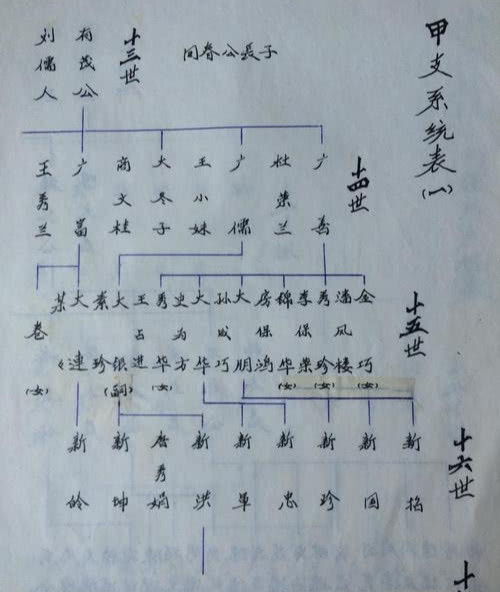 甲支系统表(一)
同春公長子
十三世
有茂公
刘儒人
十四世
广善
杜荣兰
广儒
王小妹
大冬子
商文桂
广富
王秀兰
十五世
金巧(女)
潘风楼
秀珍(女)
李保荣
锦华(女)
房保鸿
大朋
孙成巧
大华
史为方
秀华(女)
王占进
大银(嗣)
秦珍
大連
某
卷(女)
十六世
新
新国
新珍
新忠
新単
新洪
詹秀娟
新坤
新龄
十